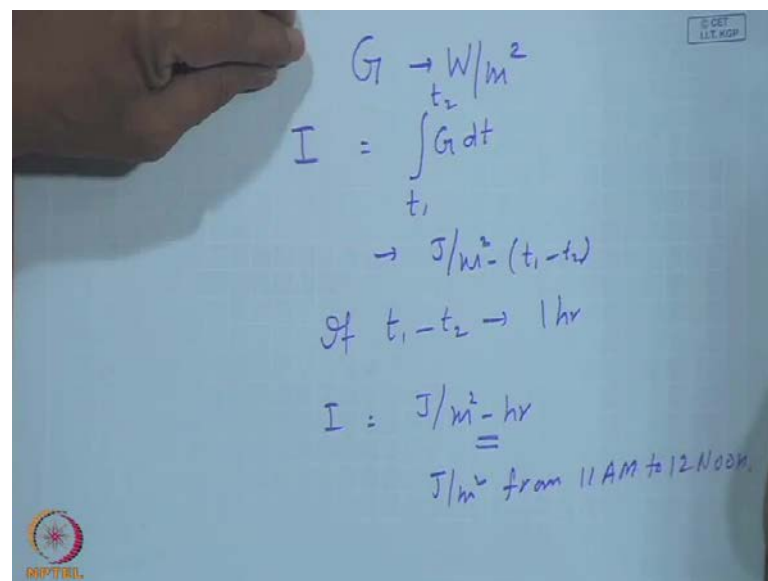 © CET
I.I.T. KGP
G → W/m²
t₂
I = ∫ G dt
t₁
→ J/m² - (t₁ - t₂)
If t₁ - t₂ → 1 hr
I = J/m² - hr
J/m² from 11 AM to 12 Noon.
NPTEL